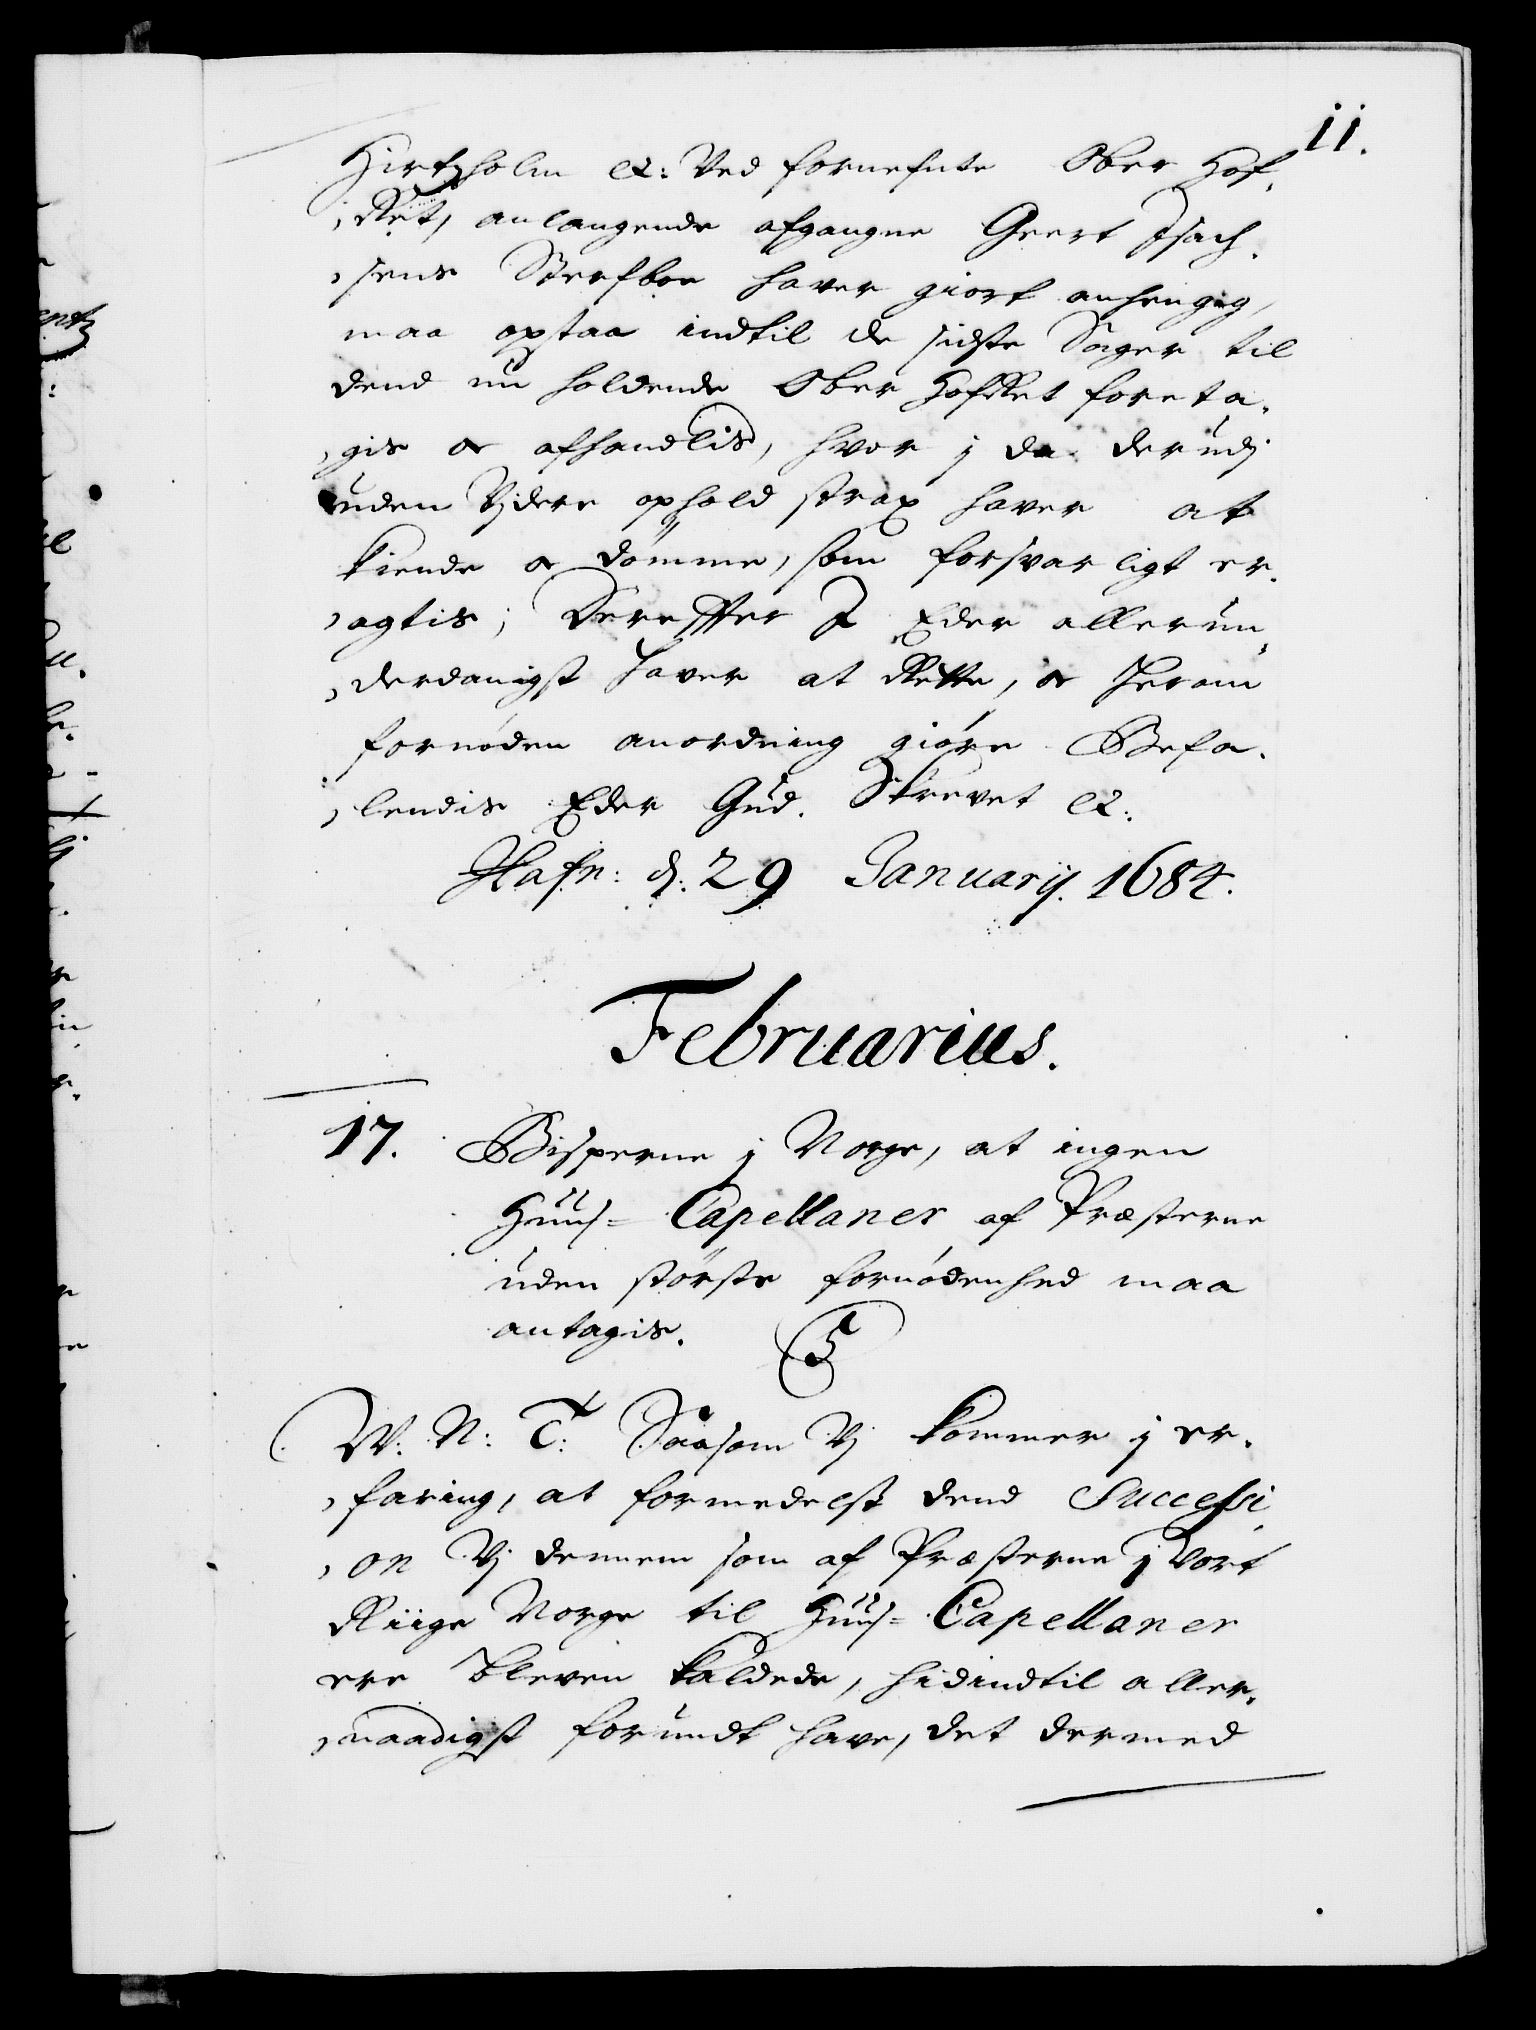 11.
Hirtzholm etc: Ved fornefnte Ober Hof,
,Ret, anlangende afgangne Geert Isach,
,sens Sterfboe haver giort anhengig,
maa opstaa indtil de sidste Sager til
dend nu holdende Ober HofRet foreta,
,gis oc afhandlis, hvor j da derudj
uden Vjdere ophold strax haver at
kiende oc dömme, som forsvarligt er,
,agtis; Dereffter I Eder allerun,
,derdanigst haver at Rette, oc herom
fornøden anordning giøre. Befa,
,lendis Eder Gud. Skrevet etc.
Hafn: d: 29 Januarij. 1684.
Februarius.
17. Bisperne j Norge, at ingen
Huus= Capellaner af Præsterne
uden störste fornødenhed maa
antagis.
W. N: T: Saasom Vj kommer j er,
,faring, at formedelst dend Successi,
,on Vj dennem som af Præsterne j Vort
Riige Norge til Huus= Capellaner
ere bleven kaldede, hidindtil aller,
,naadigst forundt have, det dermed